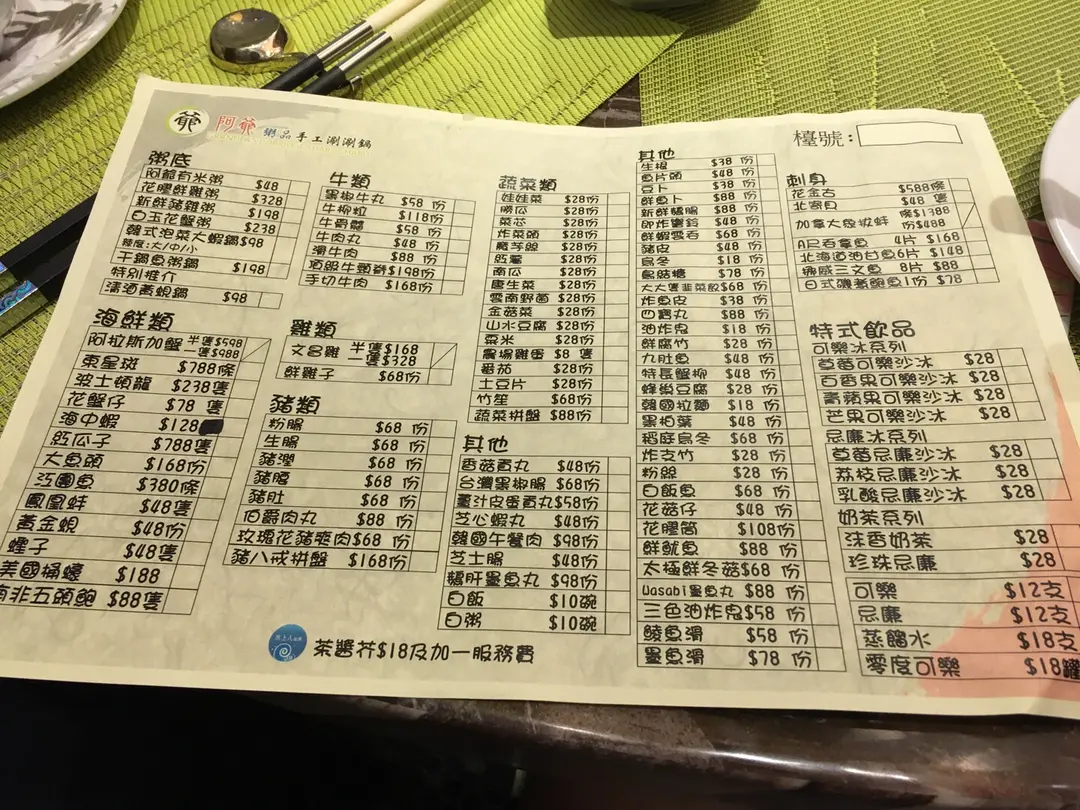 爺 阿爺 粥品手工涮涮鍋
檯號:
粥底
阿爺有米粥 $48
花膠鮮雞粥 $328
新鮮豬雜粥 $198
白玉花蟹粥 $238
韓式泡菜大蝦鍋$98
辣度:大/中/小
干鍋魚粥鍋 $198
特別推介
清酒黃蜆鍋 $98
海鮮類
阿拉斯加蟹 半隻$598
一隻$988
東星斑 $788條
波士頓龍 $238隻
花蟹仔 $78 隻
海中蝦 $128
紅瓜子 $788隻
大魚頭 $168份
江團魚 $380條
鳳凰蚌 $48隻
黃金蜆 $48份
蟶子 $48隻
美國桶蠔 $188
南非五頭鮑 $88隻
牛類
黑椒牛丸 $58 份
牛柳粒 $118份
牛骨髓 $58 份
牛肉丸 $48 份
滑牛肉 $88 份
頂級牛頸脊$198份
手切牛肉 $168份
雞類
文昌雞 半隻$168
一隻$328
鮮雞子 $68份
豬類
粉腸 $68 份
生腸 $68 份
豬潤 $68 份
豬腰 $68 份
豬肚 $68 份
伯爵肉丸 $88 份
玫瑰花豬爽肉$68 份
豬八戒拼盤 $168份
蔬菜類
娃娃菜 $28份
勝瓜 $28份
菜芯 $28份
炸菜頭 $28份
魔芋絲 $28份
旺薯 $28份
南瓜 $28份
唐生菜 $28份
雲南野菌 $28份
金菇菜 $28份
山水豆腐 $28份
粟米 $28份
農場雞蛋 $8 隻
番茄 $28份
土豆片 $28份
竹笙 $68份
蔬菜拼盤 $88份
其他
香菇貢丸 $48份
台灣黑椒腸 $68份
薑汁皮蛋貢丸$58份
芝心蝦丸 $48份
韓國午餐肉 $98份
芝士腸 $48份
鵝肝墨魚丸 $98份
白飯 $10碗
白粥 $10碗
其他
生根 $38 份
魚片頭 $48 份
豆卜 $38 份
鮮魚卜 $88 份
新鮮鵝腸 $88 份
即炸響鈴 $48 份
鮮蝦雲吞 $68 份
豬皮 $48 份
烏冬 $18 份
烏菇糖 $78 份
大大隻韮菜餃$68 份
炸魚皮 $38 份
四寶丸 $88 份
油炸鬼 $18 份
鮮腐竹 $28 份
九肚魚 $48 份
特長蟹柳 $48 份
蜂巢豆腐 $28 份
韓國拉麵 $18 份
黑柏葉 $48 份
稻庭烏冬 $68 份
炸支竹 $28 份
粉絲 $28 份
白飯魚 $68 份
花菇仔 $48 份
花膠筒 $108份
鮮魷魚 $88 份
太極鮮冬菇$68 份
Wasabi墨魚丸 $88 份
三色油炸鬼$58 份
鯪魚滑 $58 份
墨魚滑 $78 份
刺身
花金古 $588條
北寄貝 $48 隻
加拿大象拔蚌 條$1388
份$488
A尺吞拿魚 4片 $168
北海道油甘魚6片 $148
挪威三文魚 8片 $88
日式磯煮鮑魚1份 $78
特式飲品
可樂冰系列
草莓可樂沙冰 $28
百香果可樂沙冰 $28
青蘋果可樂沙冰 $28
芒果可樂沙冰 $28
忌廉冰系列
草莓忌廉沙冰 $28
荔枝忌廉沙冰 $28
乳酸忌廉沙冰 $28
奶茶系列
沫香奶茶 $28
珍珠忌廉 $28
可樂 $12支
忌廉 $12支
蒸餾水 $18支
零度可樂 $18罐
茶醬芥$18及加一服務費